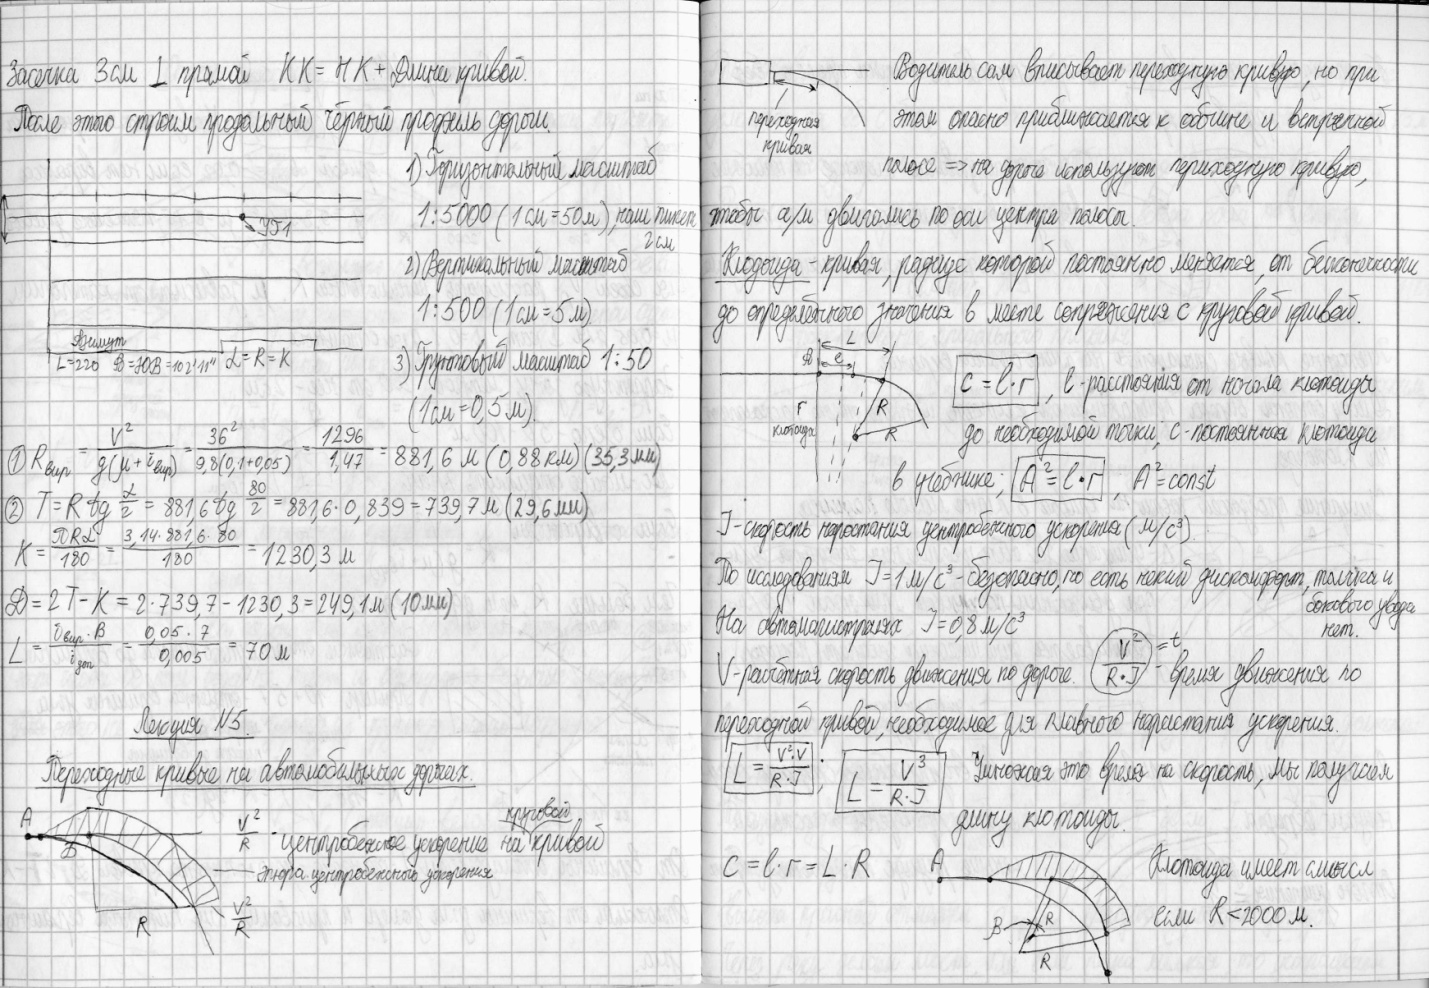 Засечка 3 см ⊥ прямой КК = НК + Длина кривой.
После этого строим продольный чёрный профиль дороги.
1) Горизонтальный масштаб
1:5000 (1 см = 50 м), наш пикет
2 см
2) Вертикальный масштаб
1:500 (1 см = 5 м).
3) Грунтовый масштаб 1:50
(1 см = 0,5 м).
УП1
Азимут
L=220 D=ЮВ=102°11" α=R=K
① Rвир = V²/g(μ+iвир) = 36²/9,8(0,1+0,05) = 1296/1,47 = 881,6 м (0,88 км) (35,3 мм)
② T = R tg α/2 = 881,6 tg 80/2 = 881,6 · 0,839 = 739,7 м (29,6 мм)
K = ПRα/180 = 3,14·881,6·80/180 = 1230,3 м
Д = 2T - K = 2·739,7 - 1230,3 = 249,1 м (10 мм)
L = iвир·В/iдоп = 0,05·7/0,005 = 70 м
Лекция N5.
Переходные кривые на автомобильных дорогах.
A
B
R
V²/R
круговой
V²/R - центробежное ускорение на кривой
Эпюра центробежного ускорения
переходная
кривая
Водитель сам вписывает переходную кривую, но при
этом опасно приближается к обочине и встречной
полосе => на дороге используют переходную кривую,
чтобы а/м двигались по оси центра полосы.
Клодоида - кривая, радиус которой постоянно меняется, от бесконечности
до определённого значения в месте сопряжения с круговой кривой.
L
e
R
R
клотоида
c = l·r , l - расстояния от начала клотоиды
до необходимой точки; c - постоянная клотоида
в учебнике; A² = l·r , A² = const
J - скорость нарастания центробежного ускорения (м/с³).
По исследованиям J = 1 м/с³ - безопасно, но есть некий дискомфорт, толчка и
бокового увода
нет.
На автомагистралях J = 0,8 м/с³
V - расчётная скорость движения по дороге. V²/R·J = t - время движения по
переходной кривой, необходимое для плавного нарастания ускорения.
L = V²·V/R·J ; L = V³/R·J Умножая это время на скорость, мы получаем
длину клотоиды.
c = l·r = L·R
A
B
R
R
Клотоида имеет смысл
если R < 2000 м.